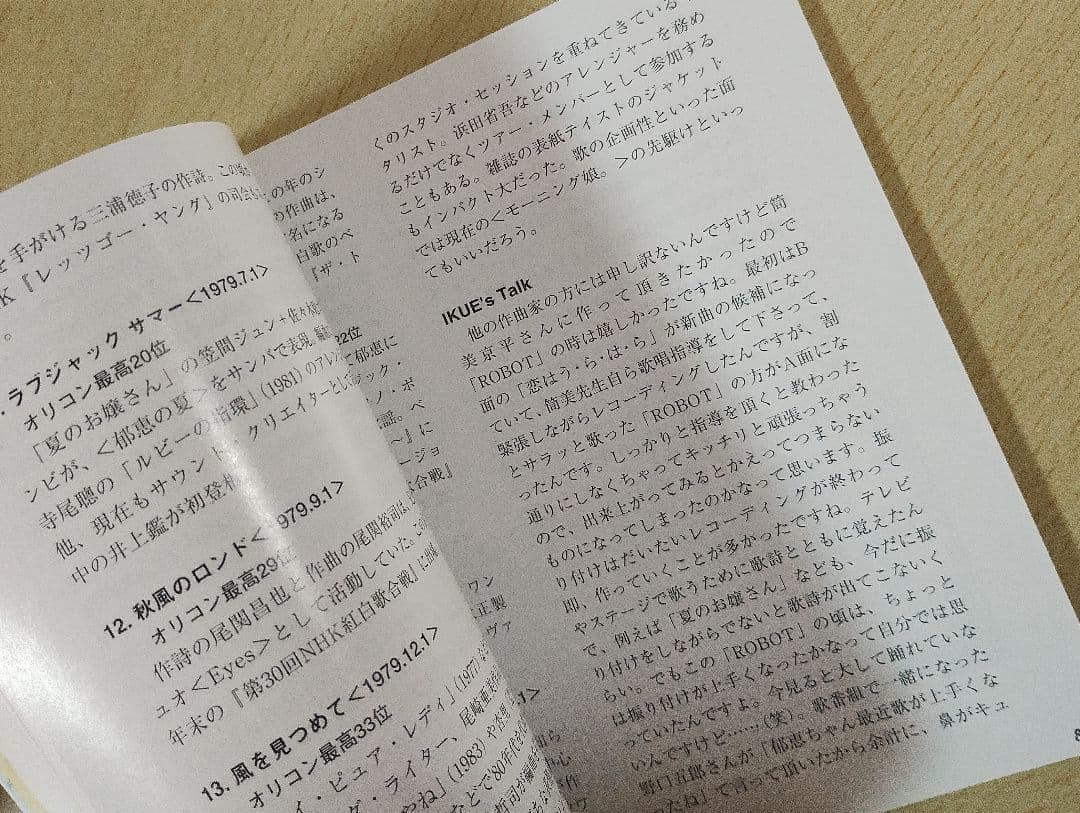 を手がける三浦徳子の作詩。この
K『レッツゴー・ヤング』の司会
。
・ラブジャック サマー<1979.7.1>
オリコン最高20位
「夏のお嬢さん」の笠間ジュン+佐々
ンビが、<郁恵の夏>をサンバで表現。
寺尾聰の「ルビーの指環」(1981)のアレ
他、現在もサウンド・クリエイターとし
中の井上鑑が初登
12. 秋風のロンド<1979.9.1>
オリコン最高29位
作詩の尾関昌也と作曲の尾関裕司は、
ュオ<Eyes>として活動していた。この
年末の『第30回NHK紅白歌合戦』に出
13. 風を見つめて<1979.12.1>
オリコン最高33位
イ・ピュア・レディ」(1977)
グ・ライター、尾崎亜美
やね」(1983)や杏里
などで'80年代を
年のシ
の作曲は、
名になる
白歌のベ
『ザ・ト
22位
て郁恵に
ラック・
ノ・ポ
謡。ベ
～』に
ージョ
合戦』
ワン
正製
ヴァ
.1>
ら
心
作
ワ
くのスタジオ・セッションを重ねてきている
タリスト。浜田省吾などのアレンジャーを務め
るだけでなくツアー・メンバーとして参加する
こともある。雑誌の表紙テイストのジャケット
もインパクト大だった。歌の企画性といった面
では現在の<モーニング娘。>の先駆けといっ
てもいいだろう。
IKUE's Talk
他の作曲家の方には申し訳ないんですけど筒
美京平さんに作って頂きたかったので
「ROBOT」の時は嬉しかったですね。最初はB
面の「恋はう・ら・は・ら」が新曲の候補になっ
ていて、筒美先生自ら歌唱指導をして下さって、
緊張しながらレコーディングしたんですが、割
とサラッと歌った「ROBOT」の方がA面にな
ったんです。しっかりと指導を頂くと教わった
通りにしなくちゃってキッチリと頑張っちゃう
ので、出来上がってみるとかえってつまらない
ものになってしまったのかなって思います。振
り付けはだいたいレコーディングが終わって
即、作っていくことが多かったですね。テレビ
やステージで歌うために歌詩とともに覚えたん
で、例えば「夏のお嬢さん」なども、今だに振
り付けをしながらでないと歌詩が出てこないく
らい。でもこの「ROBOT」の頃は、ちょっと
は振り付けが上手くなったかなって自分では思
っていたんですよ。今見ると大して踊れていな
いんですけど……(笑)。歌番組で一緒になった
野口五郎さんが「郁恵ちゃん最近歌が上手くな
ったね」て言って頂いたから余計に、鼻がキュ
8